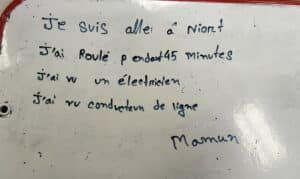 Je suis allei á Niort
J'ai Roulé pendant 45 minutes
J'ai vu un électricien
J'ai vu conducteur de ligne
Mamun